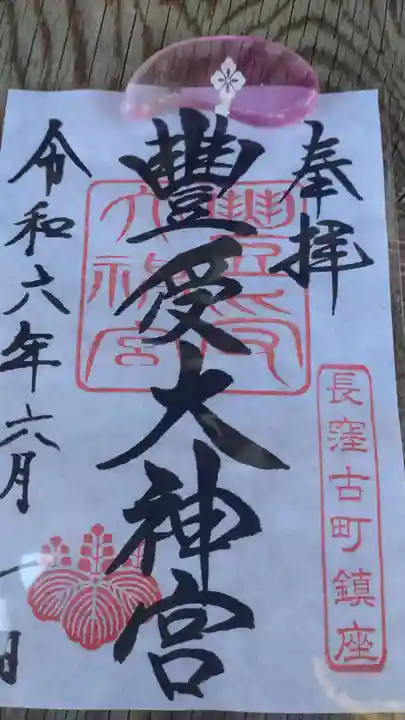 奉拝
長窪古町鎮座
豐受大神宮
豐受大神宮
令和六年六月一日